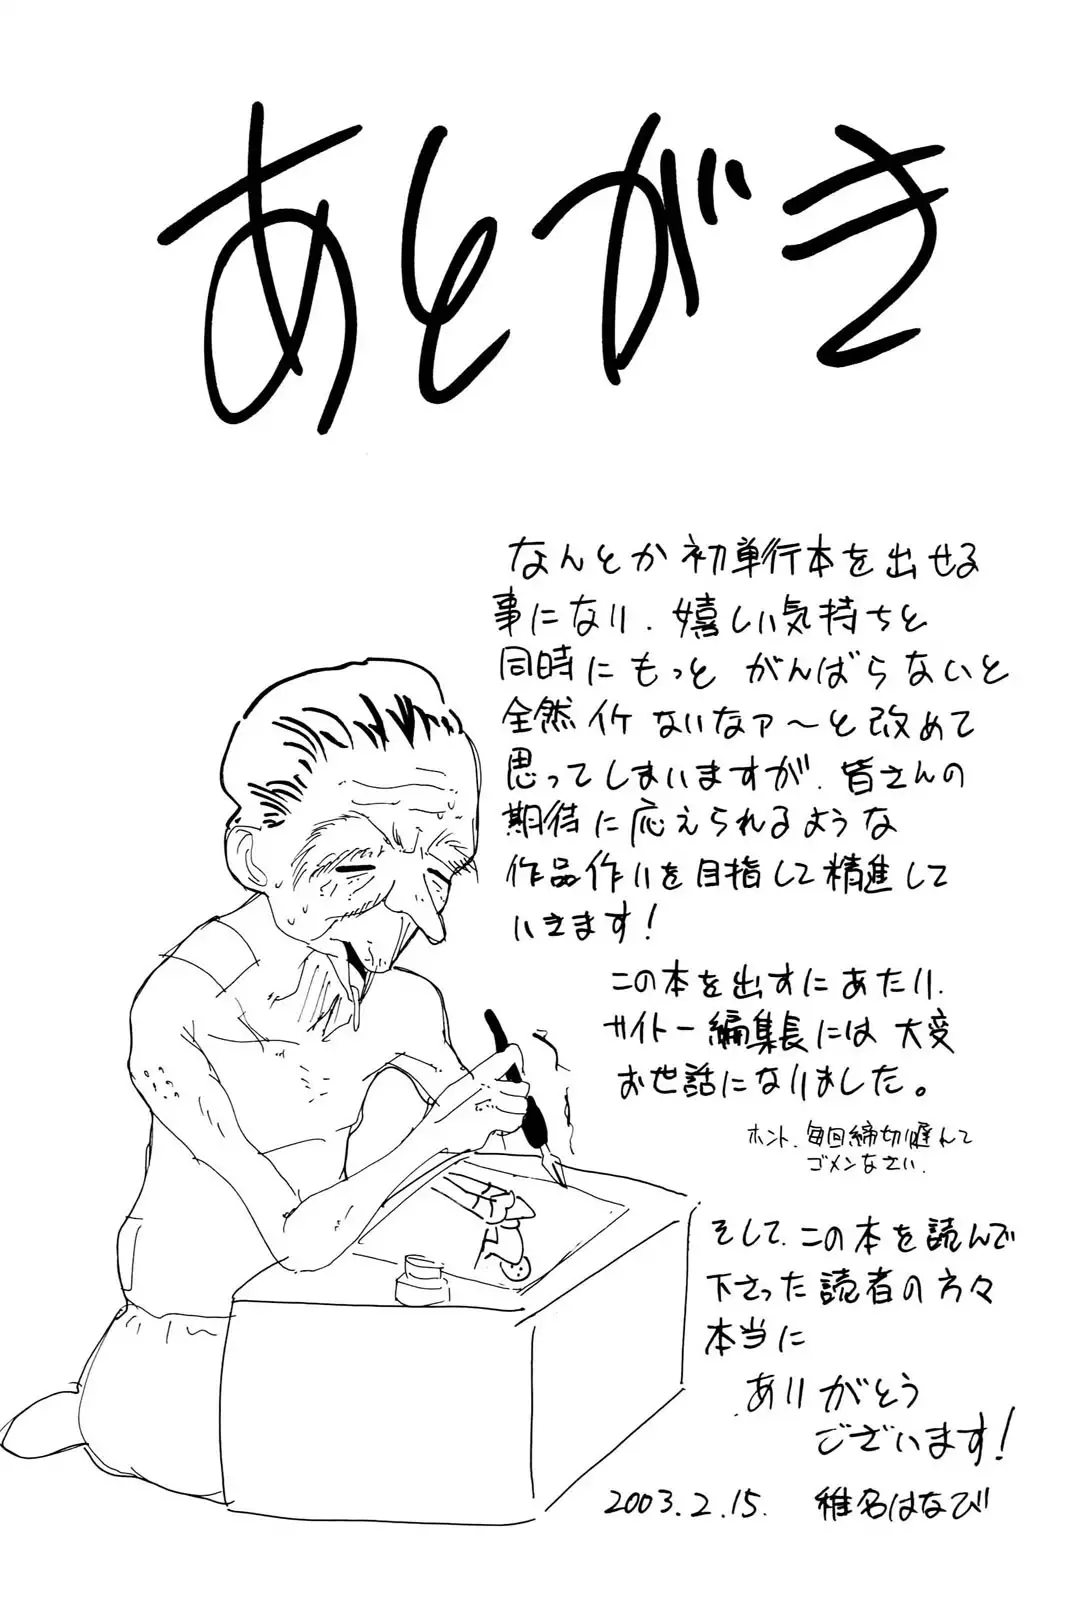 あとがき
なんとか初単行本を出せる
事になり、嬉しい気持ちと
同時にもっとがんばらないと
全然イケないなァ～と改めて
思ってしまいますが、皆さんの
期待に応えられるような
作品作りを目指して精進して
いきます！
この本を出すにあたり、
サイトー編集長には大変
お世話になりました。
ホント、毎回締切り遅んて
ゴメンなさい。
そして、この本を読んで
下さった読者の方々
本当に
ありがとう
ございます！
2003.2.15. 椎名はなび